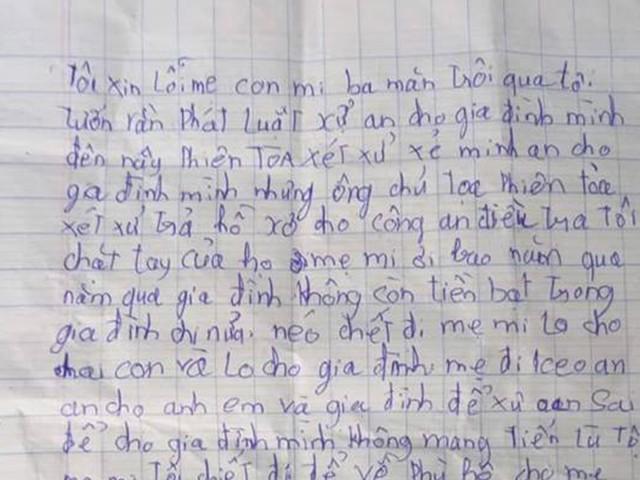 Tôi xin Lỗi mẹ con mi ba mãn trôi qua tô.
Luôn rằn Phát Luật xử an cho gia đình mình
đên nây Phiên TOA XÉT XỬ xẻ minh an cho
gia đình mình nhưng ông chủ loa Phiên tòa
XÉT XỬ trả hồ xơ cho công an điều tra Tôi
chất tay của họ mẹ mi ơi bao năm qua
năm qua gia đình không còn tiền bạt trong
gia đình chi nửa. néo chết đi mẹ mi lo cho
hai con và lo cho gia đình. mẹ đi keo an
an cho anh em và gia đình để xử oan Sai
để cho gia đình mình không mang Tiến Lù Tộ
Tôi chiết đi để về Phù hộ cho mẹ